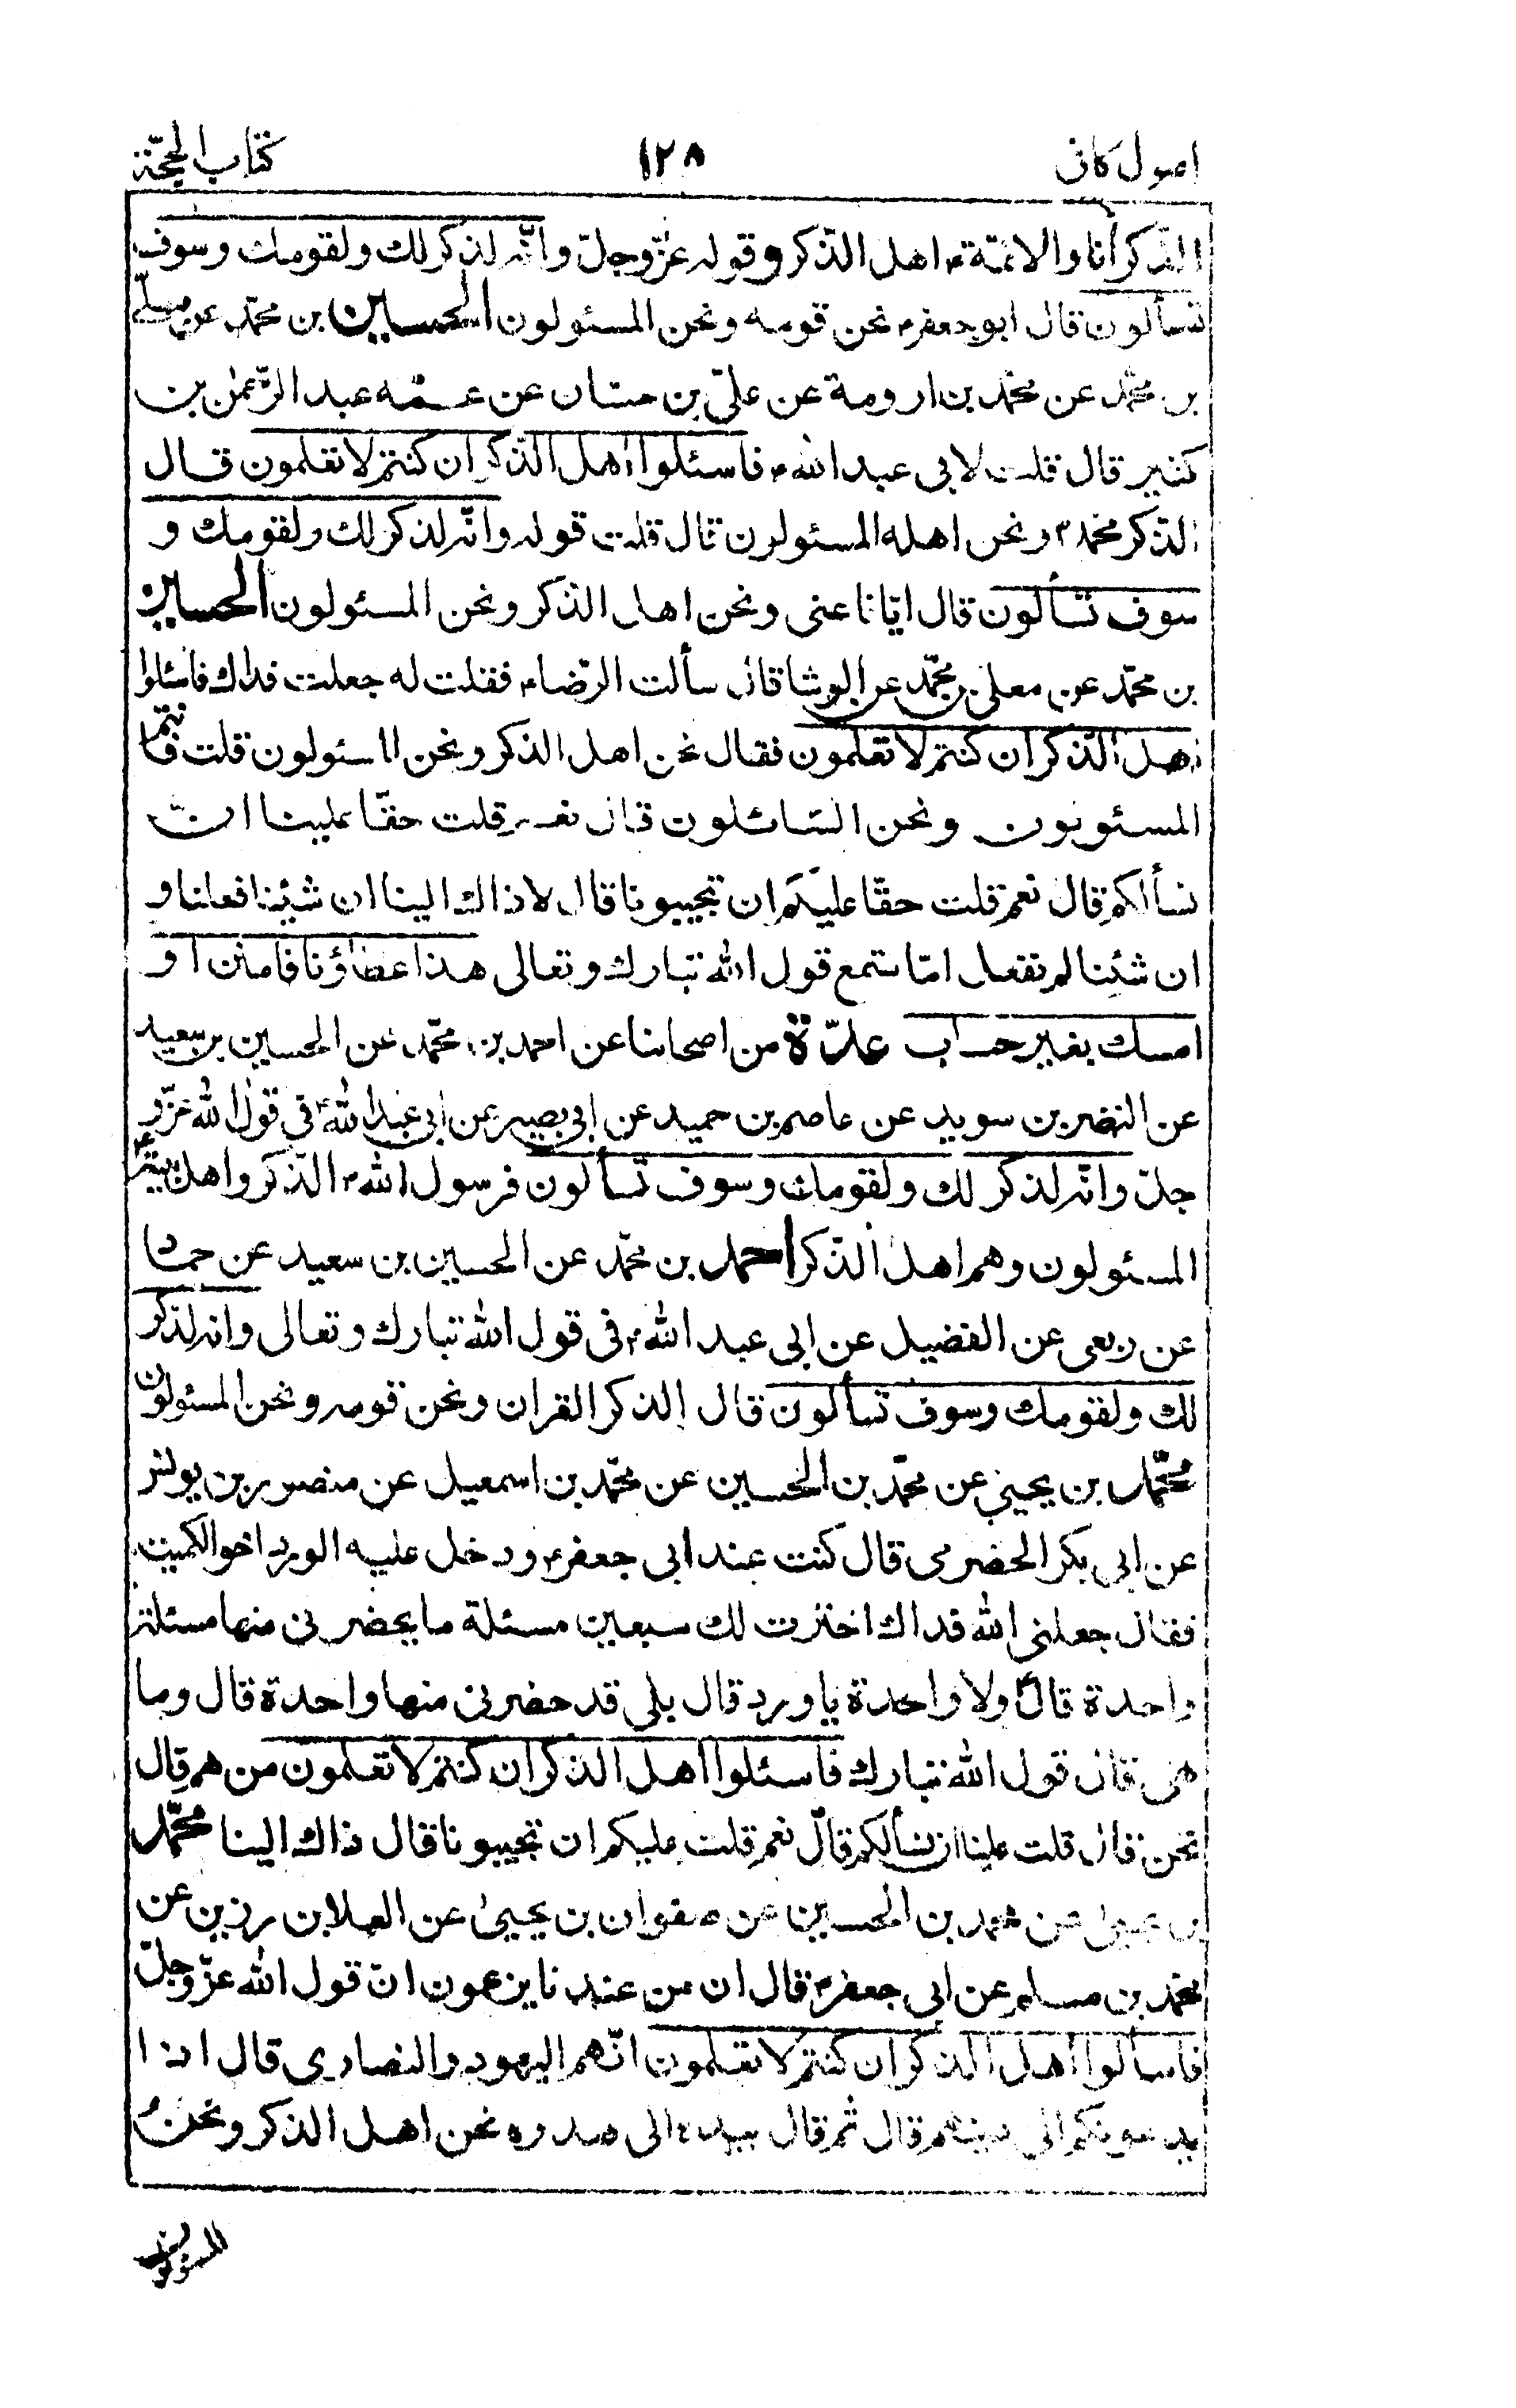 اصول كافى ١٢٨ كتاب الحجّة
الذّكر أنا والائمّة ع اهل الذّكر وقوله عزّ وجلّ وانّه لذكر لك ولقومك وسوف
تسألون قال ابو جعفر ع نحن قومه ونحن المسئولون الحسين بن محمّد عن معلّى
بن محمّد عن محمّد بن ارومة عن علىّ بن حسّان عن عمّه عبد الرّحمٰن بن
كثير قال قلت لابى عبد الله ع فاسئلوا اهل الذّكر ان كنتم لا تعلمون قال
الذّكر محمّد ص ونحن اهله المسئولون قال قلت قوله وانّه لذكر لك ولقومك و
سوف تسألون قال ايّانا عنى ونحن اهل الذّكر ونحن المسئولون الحسين
بن محمّد عن معلى بن محمّد عن الوشا قال سألت الرّضا ع فقلت له جعلت فداك فاسئلوا
اهل الذّكر ان كنتم لا تعلمون فقال نحن اهل الذكر ونحن المسئولون قلت فانتم
المسئولون ونحن السّائلون قال نعم قلت حقّا علينا انّ
نسألكم قال نعم قلت حقّا عليكم ان تجيبونا قال لا ذاك الينا ان شيئنا فعلنا و
ان شئنا لم نفعل امّا تسمع قول الله تبارك وتعالى هذا عطاؤنا فامنن او
امسك بغير حساب عدّة من اصحابنا عن احمد بن محمّد عن الحسين بن سعيد
عن النضر بن سويد عن عاصم بن حميد عن ابى بصير عن ابى عبد الله ع فى قول الله عزّ و
جلّ وانّه لذكر لك ولقومك وسوف تسألون فرسول الله ص الذّكر واهل بيته ع
المسئولون وهم اهل الذّكر احمد بن محمّد عن الحسين بن سعيد عن حمّاد
عن ربعى عن الفضيل عن ابى عبد الله ع فى قول الله تبارك وتعالى وانه لذكر
لك ولقومك وسوف تسألون قال الذكر القران ونحن قومه ونحن المسئولون
محمّد بن يحيىٰ عن محمّد بن الحسين عن محمّد بن اسمعيل عن منصور بن يونس
عن ابى بكر الحضرمى قال كنت عند ابى جعفر ع ودخل عليه الورد اخو الكميت
فقال جعلنى الله فداك اخترت لك سبعين مسئلة ما يحضرنى منها مسئلة
واحدة قال ع ولا واحدة يا ورد قال بلى قد حضرنى منها واحدة قال وما
هى قال قول الله تبارك فاسئلوا اهل الذكر ان كنتم لا تعلمون من هم قال
نحن قال قلت علينا ان نسألكم قال نعم قلت عليكم ان تجيبونا قال ذاك الينا محمّد
بن يحيىٰ عن محمد بن الحسين عن صفوان بن يحيىٰ عن العلا بن رزين عن
محمد بن مسلم عن ابى جعفر ع قال ان من عندنا يزعمون انّ قول الله عزّ وجلّ
فاسألوا اهل الذكر ان كنتم لا تعلمون انّهم اليهود والنصارى قال اذا
يدعونكم الى دينهم قال ثم قال بيده الى صدره نحن اهل الذكر ونحن
المسئولون